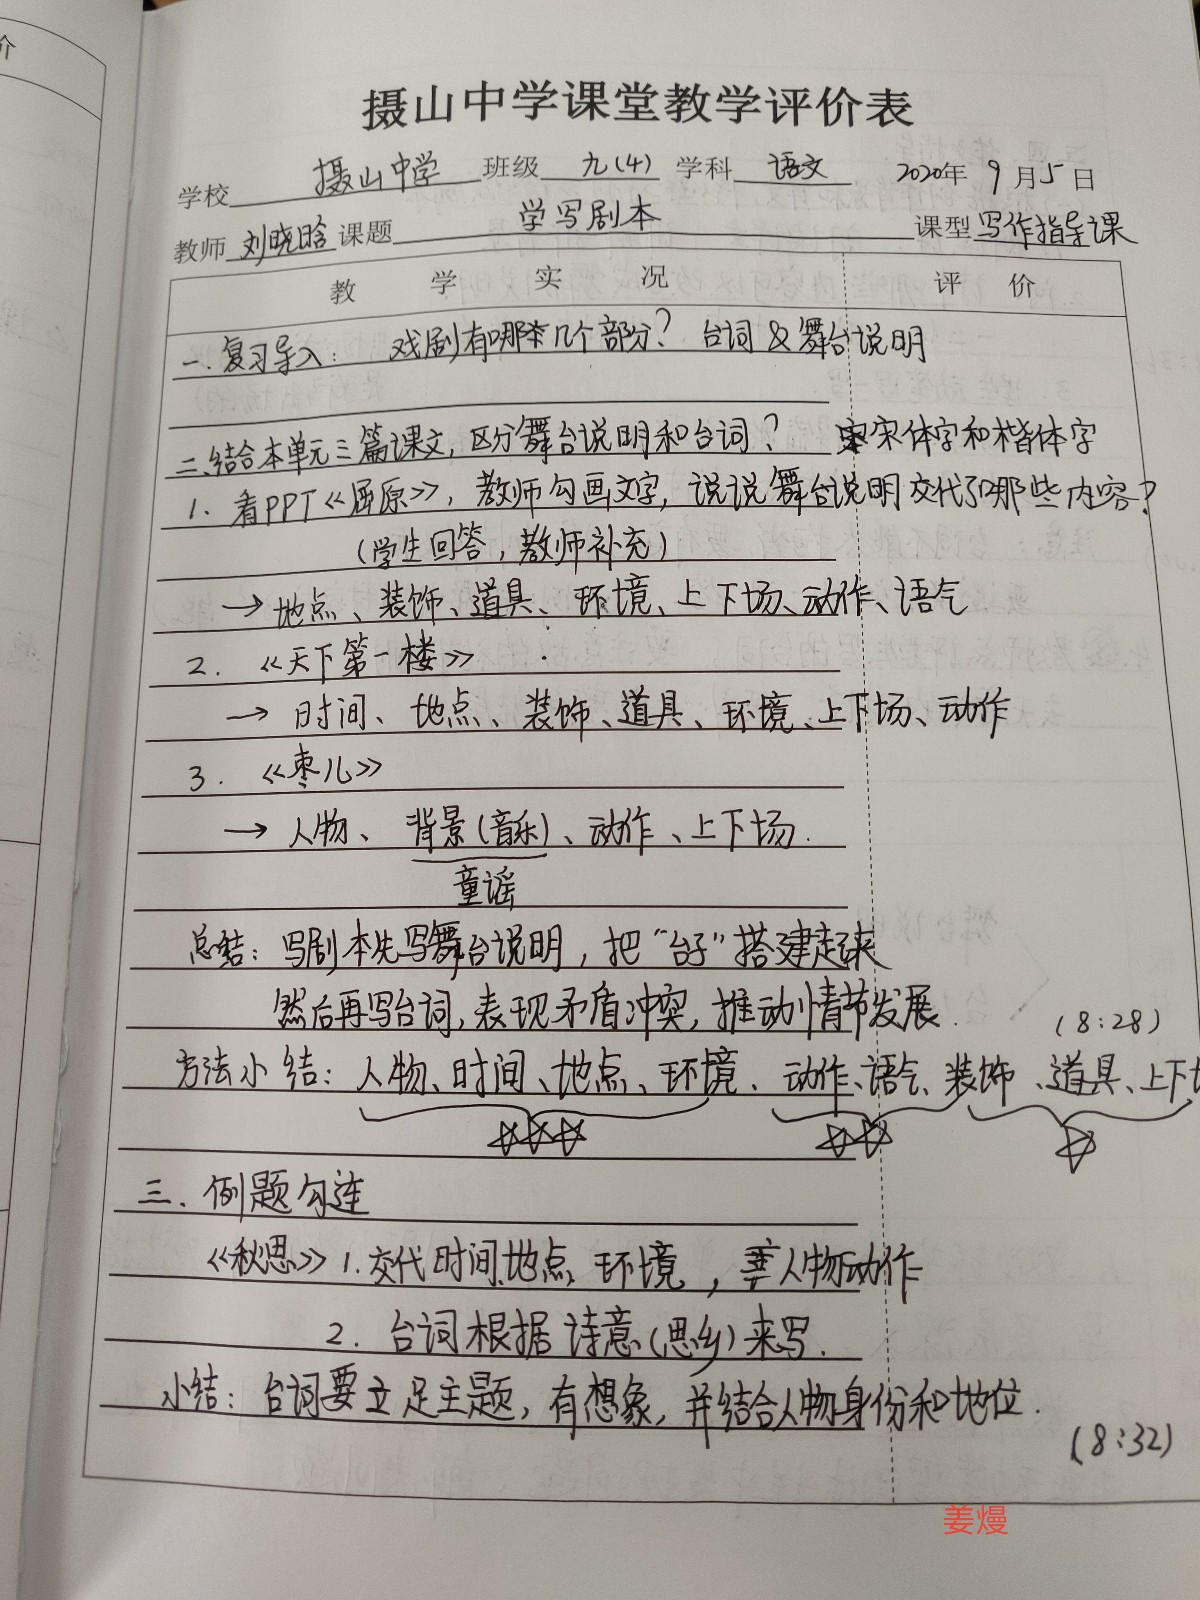 摄山中学课堂教学评价表
学校 摄山中学 班级 九(4) 学科 语文 2020年 9月5日
教师 刘晓晗 课题 学写剧本 课型 写作指导课
教学实况 评价
一.复习导入: 戏剧有哪几个部分? 台词&舞台说明
二.结合本单元三篇课文,区分舞台说明和台词? 宋体字和楷体字
1. 看PPT《屈原》,教师勾画文字,说说舞台说明交代了哪些内容?
(学生回答,教师补充)
→地点、装饰、道具、环境、上下场、动作、语气
2. 《天下第一楼》
→ 时间、地点、装饰、道具、环境、上下场、动作
3. 《枣儿》
→ 人物、背景(音乐)、动作、上下场.
童谣
总结: 写剧本先写舞台说明,把“台子”搭建起来
然后再写台词,表现矛盾冲突,推动情节发展.
(8:28)
方法小结: 人物、时间、地点、环境、动作、语气、装饰、道具、上下
三.例题勾连
《秋思》1.交代时间、地点、环境,人物动作
2. 台词根据诗意(思乡)来写.
小结: 台词要立足主题,有想象,并结合人物身份和地位.
(8:32)
姜熳